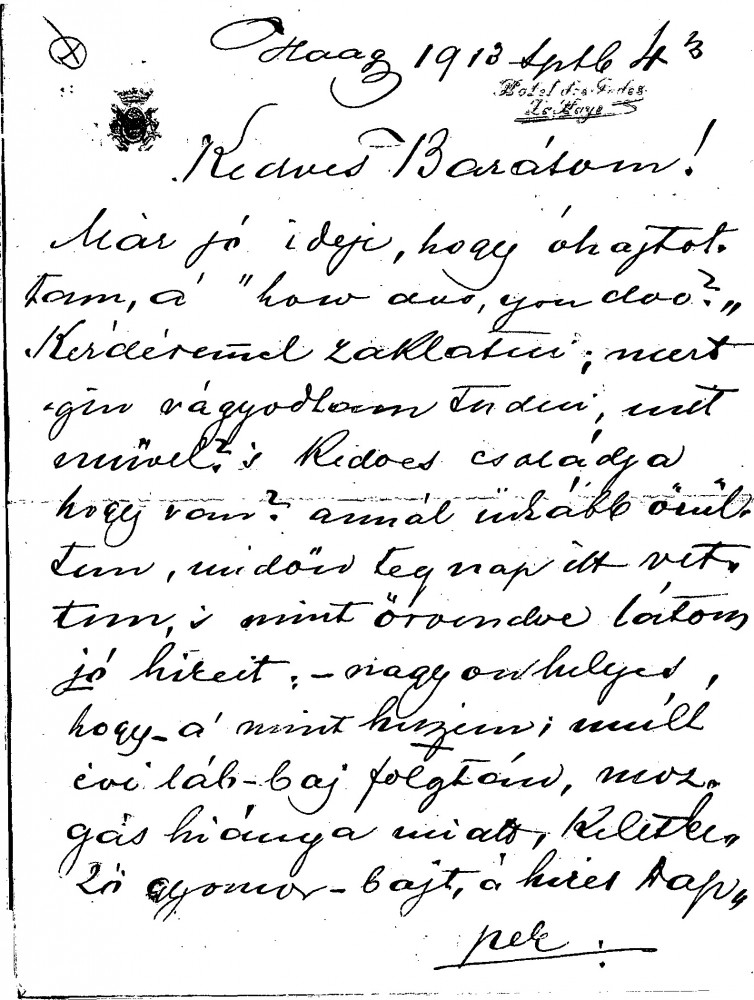 Haag 1913 Sptb 4
Hotel des Indes
La Haye
Kedves Barátom!
Már jó ideje, hogy óhajtot-
tam, á "how doo, you doo?"
Kérdésemmel zaklatni; mert
vágyodtam tudni, mit
müvel? 's Kedves családja
hogy van? annál inkább örül-
tem, midőn tegnap itt vet-
tem, 's mint örvendve látom
jó hireit; - nagyon helyes,
hogy - á mint hiszem; múlt
évi láb-baj folytán, moz-
gás hiánya miatt, Keletke„
ző gyomor-bajt, á hires Kap„
per: